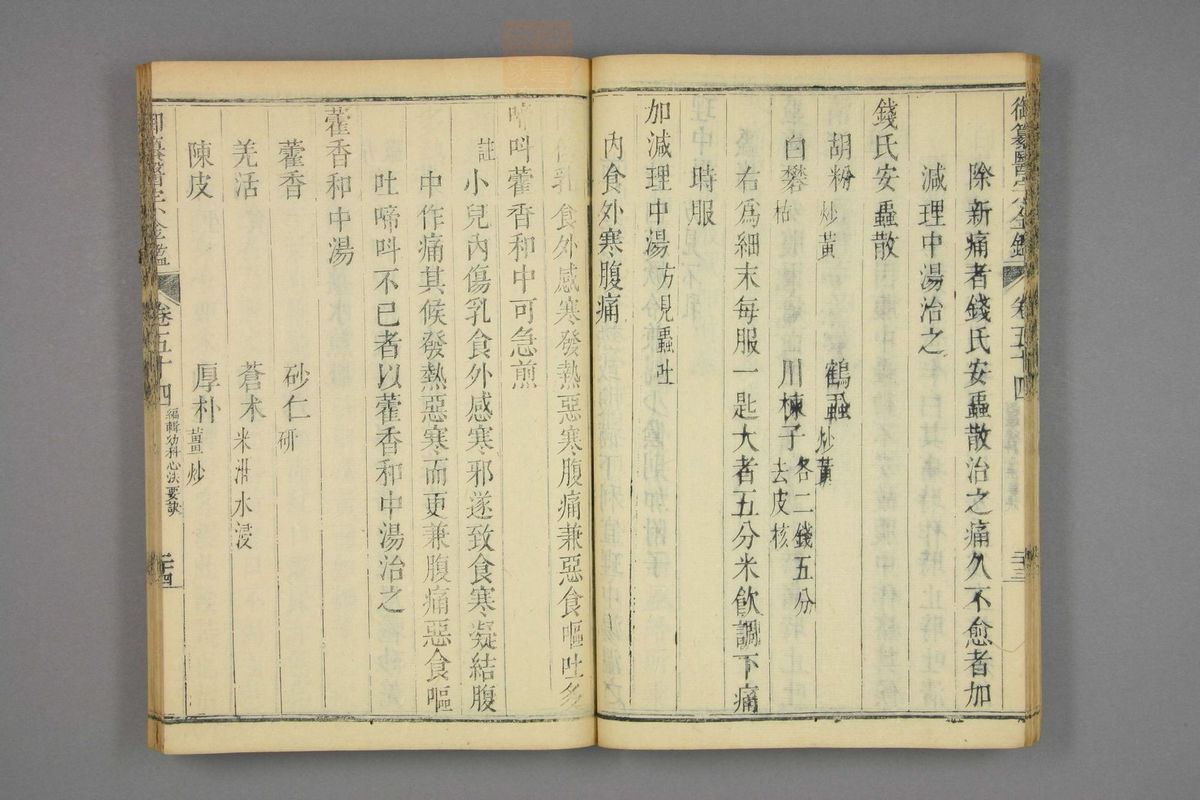 御纂醫宗金鑑 卷五十四 二十三
除新痛者錢氏安蟲散治之痛久不愈者加
減理中湯治之
錢氏安蟲散
胡粉炒黃 鶴蝨炒黃
白礬枯 川楝子去皮核各二錢五分
右爲細末每服一匙大者五分米飲調下痛
時服
加減理中湯方見蟲吐
內食外寒腹痛
乳食外感寒發熱惡寒腹痛兼惡食嘔吐多
啼呌藿香和中可急煎
註小兒內傷乳食外感寒邪遂致食寒凝結腹
中作痛其候發熱惡寒而更兼腹痛惡食嘔
吐啼呌不已者以藿香和中湯治之
藿香和中湯
藿香 砂仁研
羌活 蒼术米泔水浸
陳皮 厚朴薑炒
御纂醫宗金鑑 卷五十四 編輯幼科心法要訣 二十四